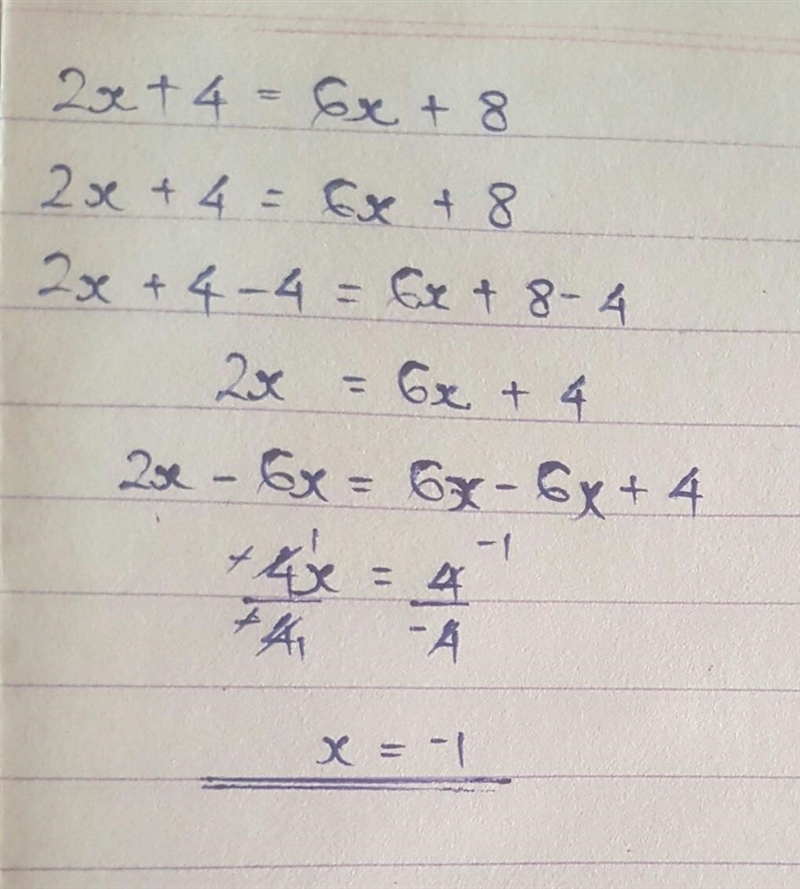 2x + 4 = 6x + 8
2x + 4 = 6x + 8
2x + 4 - 4 = 6x + 8 - 4
2x = 6x + 4
2x - 6x = 6x - 6x + 4
-4x/-4 = 4/-4
1 1 -1
x = -1